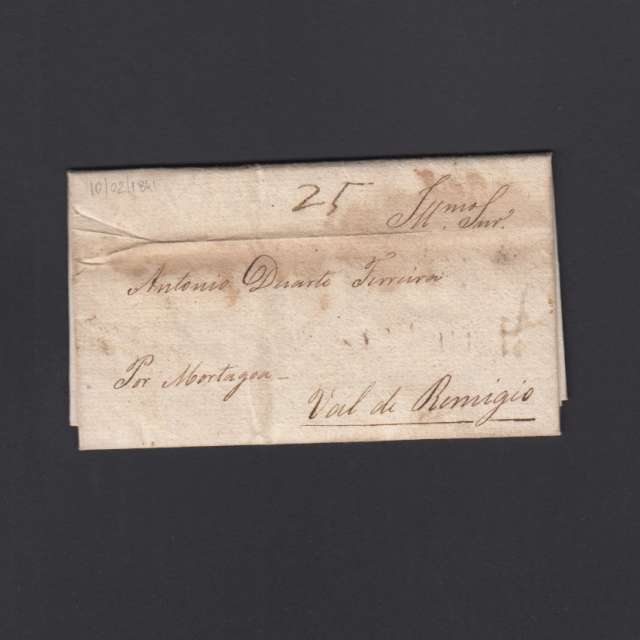 10/02/1841
25
Illmo. Snr.
Antonio Duarte Ferreira
Por Mortagoa
Val de Remigio